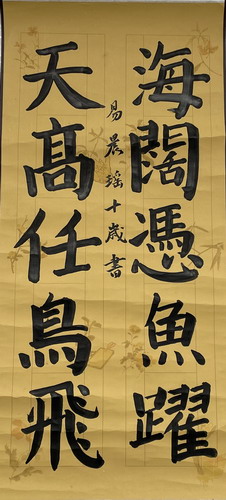 海闊憑魚躍
天高任鳥飛
易晨瑶十歲書